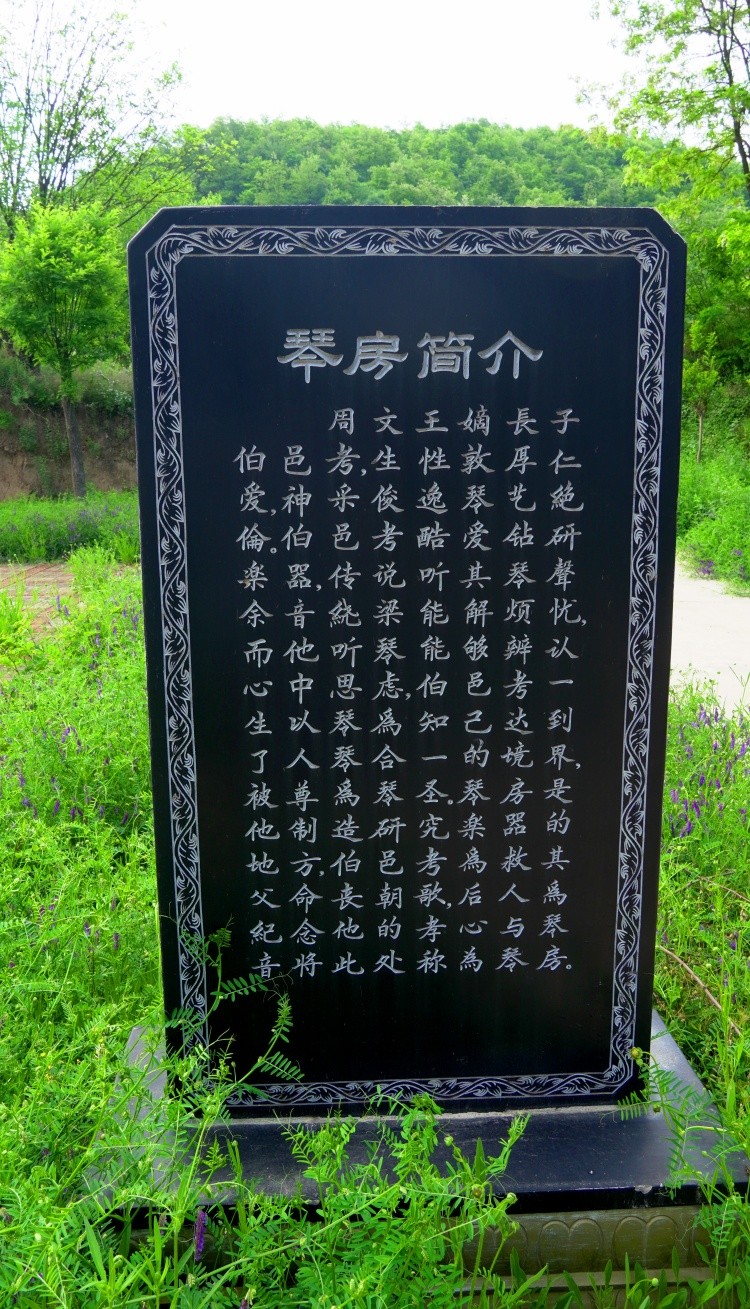 琴房简介
周文王嫡長子
伯邑考,生性敦厚仁
爱,神采俊逸琴艺絶
倫。伯邑考酷爱钻研
楽器,传说听其琴聲
余音绕梁能解烦忧,
而他听琴能够辨认
心中思虑,伯邑考一
生以琴為知己达到
了人琴合一的境界,
被尊為琴圣。琴房是
他制造琴研究楽器的
地方,伯邑考為救其
父命丧朝歌,后人為
紀念他的孝心与琴
音将此处称為琴房。